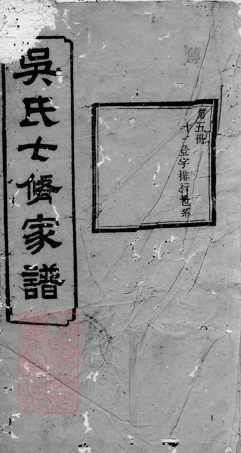 吳氏士僑家譜
第五冊
登字排行世系